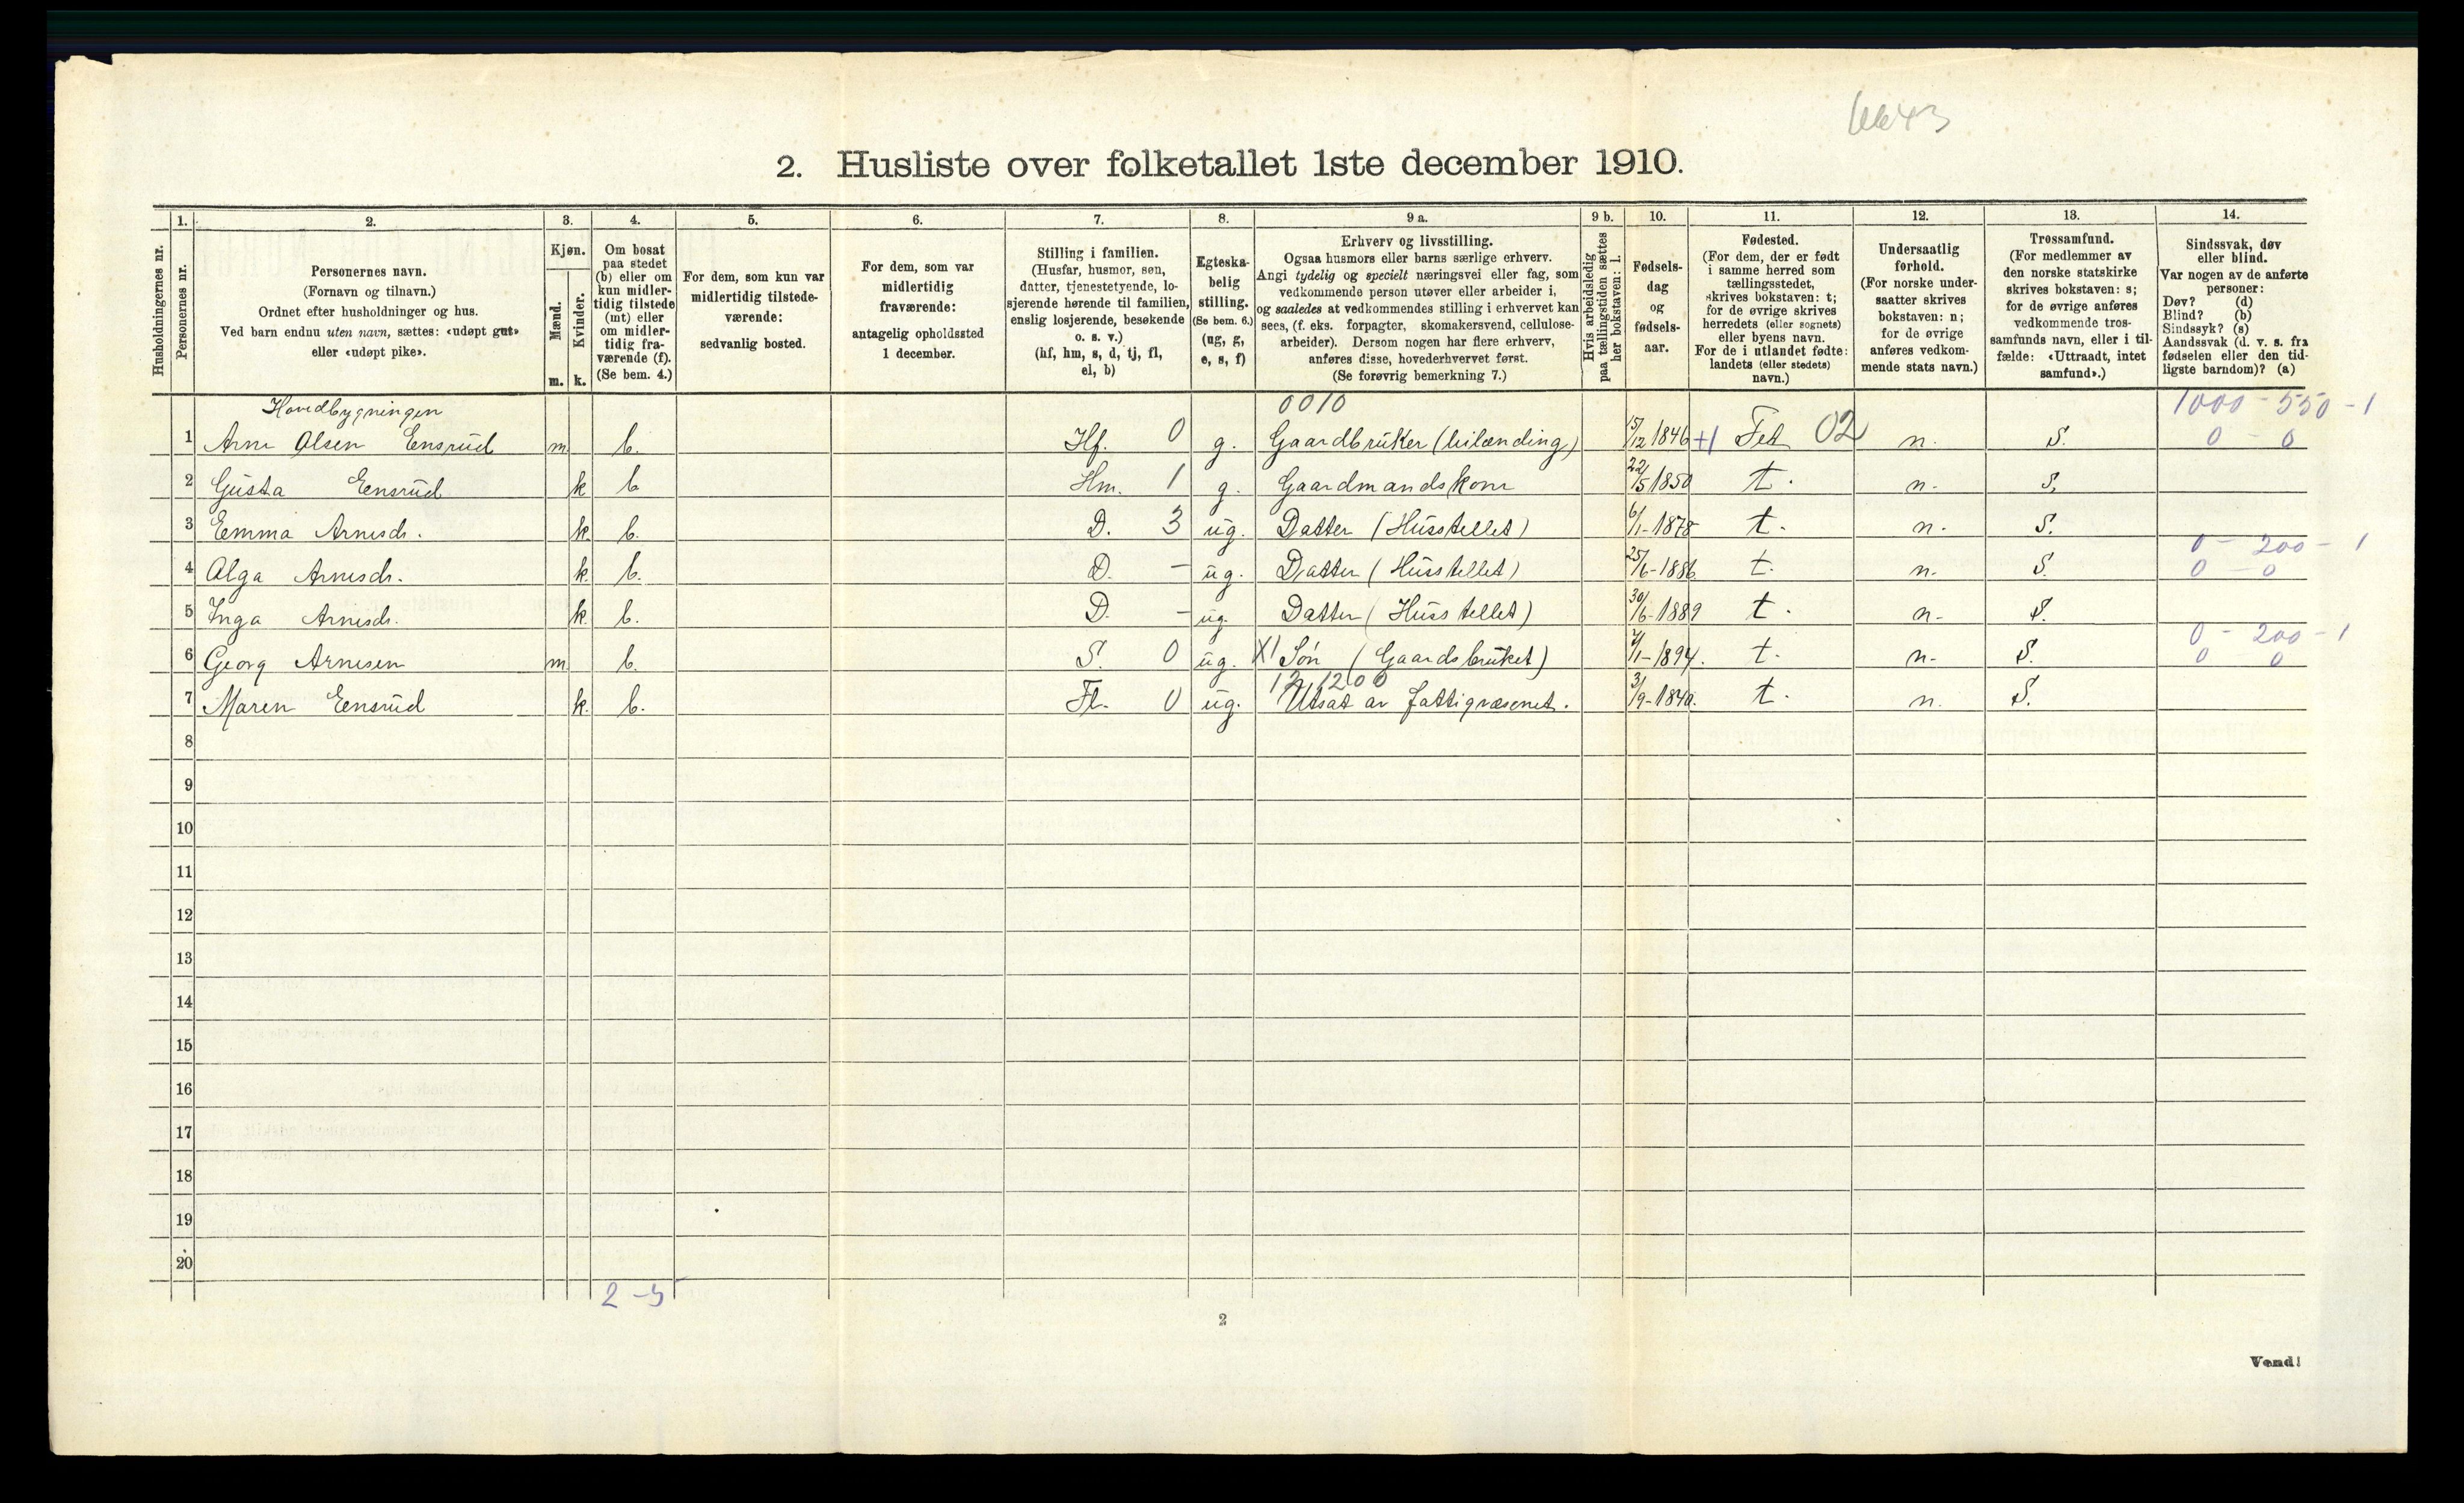 6643
2. Husliste over folketallet 1ste december 1910.
Husholdningernes nr.
1.
Personernes nr.
2.
Personernes navn.
(Fornavn og tilnavn.)
Ordnet efter husholdninger og hus.
Ved barn endnu uten navn, sættes: «udøpt gut»
eller «udøpt pike».
3.
Kjøn.
Mænd.
Kvinder.
m. k.
4.
Om bosat
paa stedet
(b) eller om
kun midler-
tidig tilstede
(mt) eller
om midler-
tidig fra-
værende (f).
(Se bem. 4.)
5.
For dem, som kun var
midlertidig tilstede-
værende:
sedvanlig bosted.
6.
For dem, som var
midlertidig
fraværende:
antagelig opholdssted
1 december.
7.
Stilling i familien.
(Husfar, husmor, søn,
datter, tjenestetyende, lo-
sjerende hørende til familien,
enslig losjerende, besøkende
o. s. v.)
(hf, hm, s, d, tj, fl,
el, b)
8.
Egteska-
belig
stilling.
(Se bem. 6.)
(ug, g,
e, s, f)
9 a.
Erhverv og livsstilling.
Ogsaa husmors eller barns særlige erhverv.
Angi tydelig og specielt næringsvei eller fag, som
vedkommende person utøver eller arbeider i,
og saaledes at vedkommendes stilling i erhvervet kan
sees, (f. eks. forpagter, skomakersvend, cellulose-
arbeider). Dersom nogen har flere erhverv,
anføres disse, hovederhvervet først.
(Se forøvrig bemerkning 7.)
9 b.
Hvis arbeidsledig
paa tællingstiden sættes
her bokstaven: l.
10.
Fødsels-
dag
og
fødsels-
aar.
11.
Fødested.
(For dem, der er født
i samme herred som
tællingsstedet,
skrives bokstaven: t;
for de øvrige skrives
herredets (eller sognets)
eller byens navn.
For de i utlandet fødte:
landets (eller stedets)
navn.)
12.
Undersaatlig
forhold.
(For norske under-
saatter skrives
bokstaven: n;
for de øvrige
anføres vedkom-
mende stats navn.)
13.
Trossamfund.
(For medlemmer av
den norske statskirke
skrives bokstaven: s;
for de øvrige anføres
vedkommende tros-
samfunds navn, eller i til-
fælde: «Uttraadt, intet
samfund».)
14.
Sindssvak, døv
eller blind.
Var nogen av de anførte
personer:
Døv? (d)
Blind? (b)
Sindssyk? (s)
Aandssvak (d. v. s. fra
fødselen eller den tid-
ligste barndom)? (a)
Hovedbygningen 0010 1000 - 550 - 1
1 Arne Olsen Eensrud m. b. Hf. 0 g. Gaardbruker (hilænding) 15/12 1846 +1 Fet 02 n. S. 0 - 0
2 Gusta Eensrud k b Hm. 1 g. Gaardmandskone 22/5 1850 t. n. S.
3 Emma Arnesdr. k. b. D. 3 ug. Datter (Husstellet) 6/1-1878 t. n. S.
0 - 200 - 1
4 Olga Arnesdr. k. b. D. - ug. Datter (Husstellet) 25/6-1886 t. n. S. 0 - 0
5 Inga Arnesdr. k. b. D. - ug. Datter (Husstellet) 30/6-1889 t. n. S.
0 - 200 - 1
6 Georg Arnesen m. b. S. 0 ug. X1 Søn (Gaardsbruket) 7/1-1894. t. n. S. 0 0
12,1200
7 Maren Eensrud k. b. Fl. 0 ug. Utsat av fattigvæsenet. 3/9-1840. t. n. S.
8
9
10
11
12
13
14
15
16
17
18
19
20
2 - 5
2
Vend!